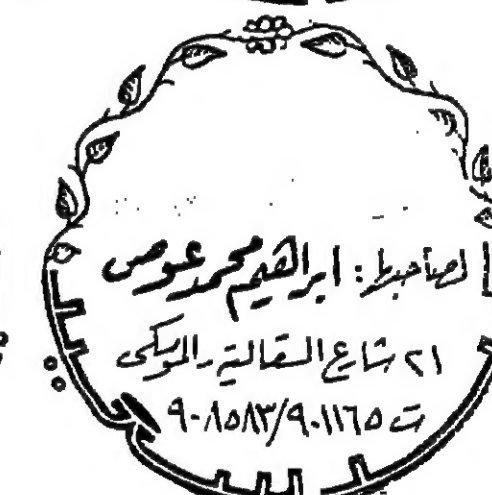 لصاحبها : ابراهيم محمد عوض
٢١ شارع الصقالبة ـ الموسكى
ت ٩٠١١٦٥/٩٠٨٥٨٣